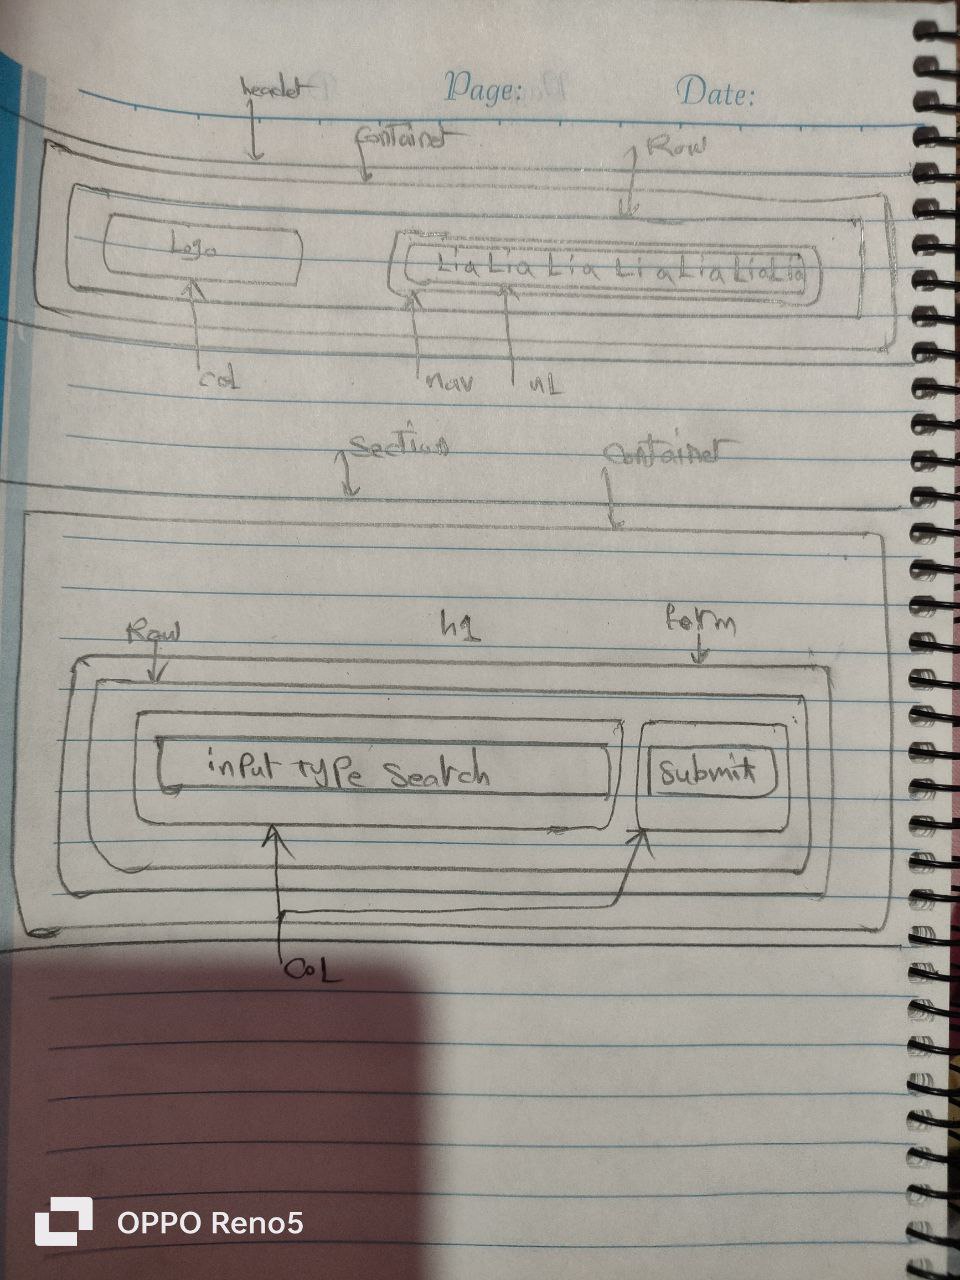 Page: Date:
header
Container
Row
Logo
Lia Lia Lia Lia Lia Lia Lia
col nav uL
Section
Container
Row h1 form
input type search
Submit
CoL
OPPO Reno5